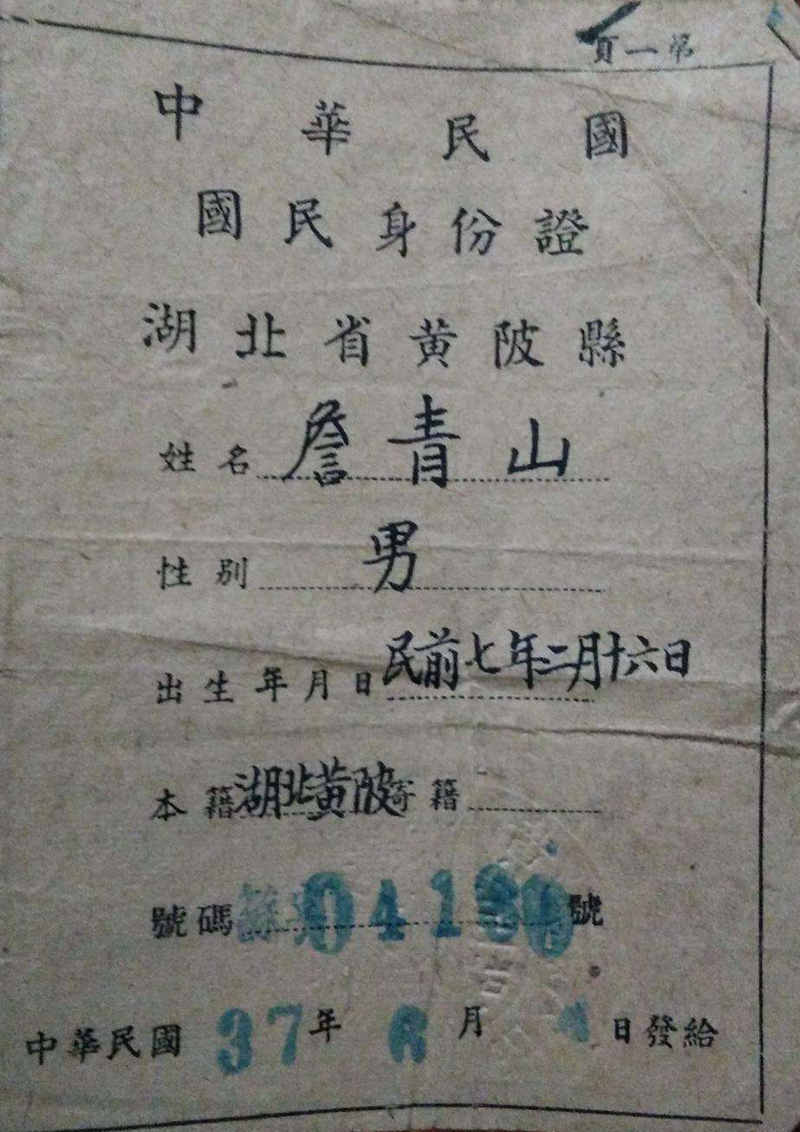 第一頁
中華民國
國民身份證
湖北省黃陂縣
姓名 詹青山
性別 男
出生年月日 民前七年二月十六日
本籍 湖北黃陂 寄籍
號碼 041 號
中華民國 37 年 6 月 日發給